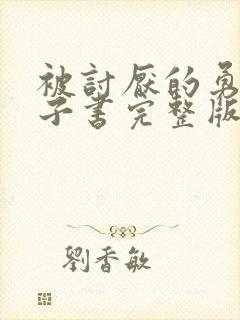 被討厭的勇
子書完整版
劉香敏